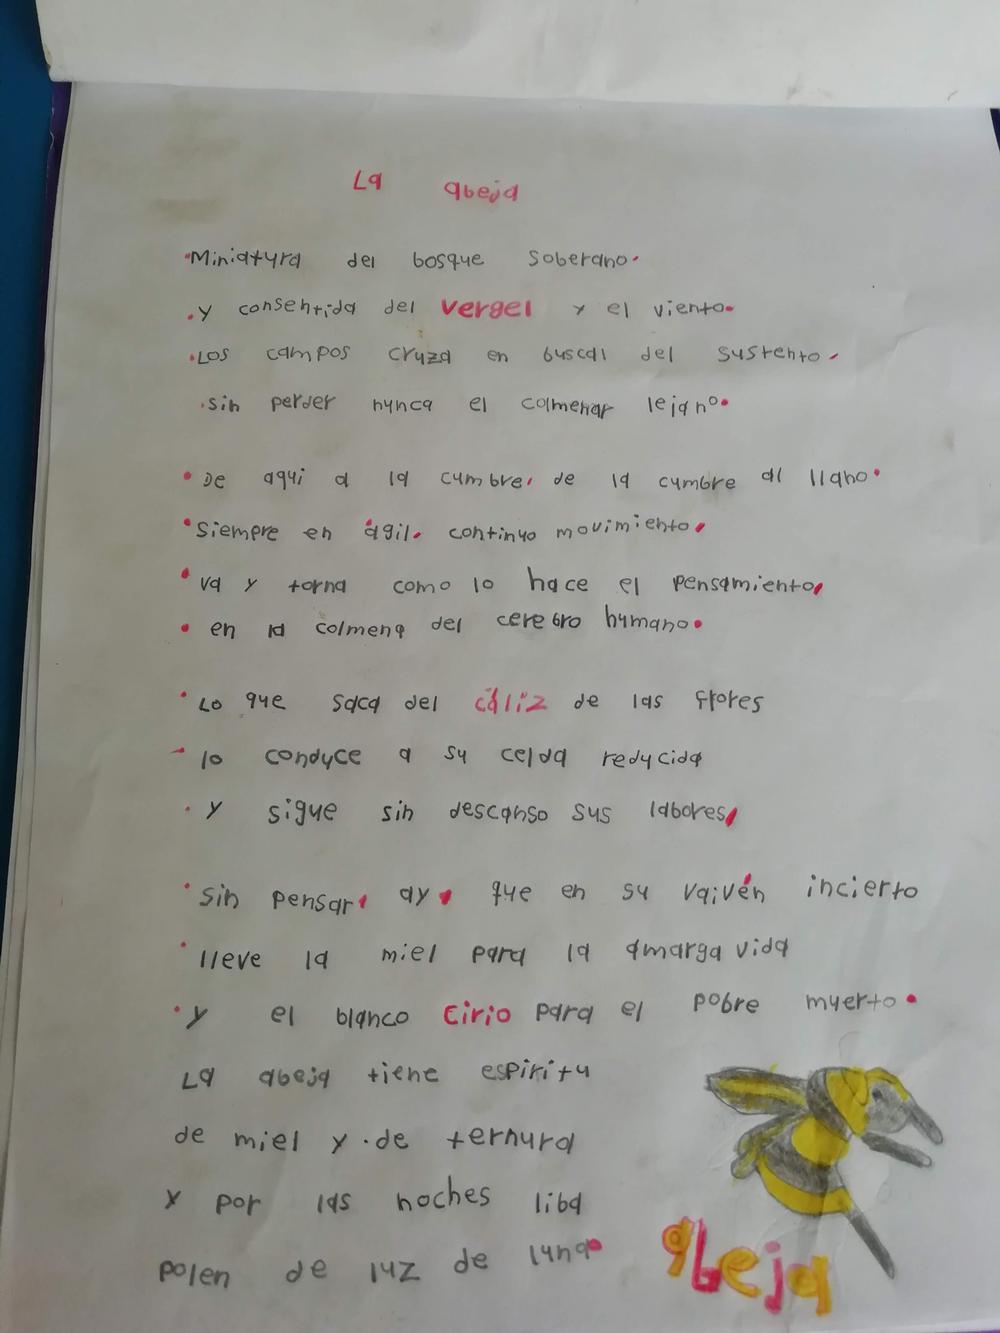 La abeja
•Miniatura del bosque soberano.
.y consentida del vergel y el viento.
.Los campos cruza en buscal del sustento,
.sin perder nunca el colmenar lejano.
•De aqui a la cumbre, de la cumbre al llano.
•Siempre en ágil, continuo movimiento,
•va y torna como lo hace el pensamiento,
•en la colmena del cerebro humano.
•Lo que saca del cáliz de las flores
-lo conduce a su celda reducida
.y sigue sin descanso sus labores,
•sin pensar, ay, que en su vaivén incierto
•lleve la miel para la amarga vida
•y el blanco cirio para el pobre muerto.
La abeja tiene espiritu
de miel y.de ternura
y por las noches liba
polen de luz de luna.
abeja